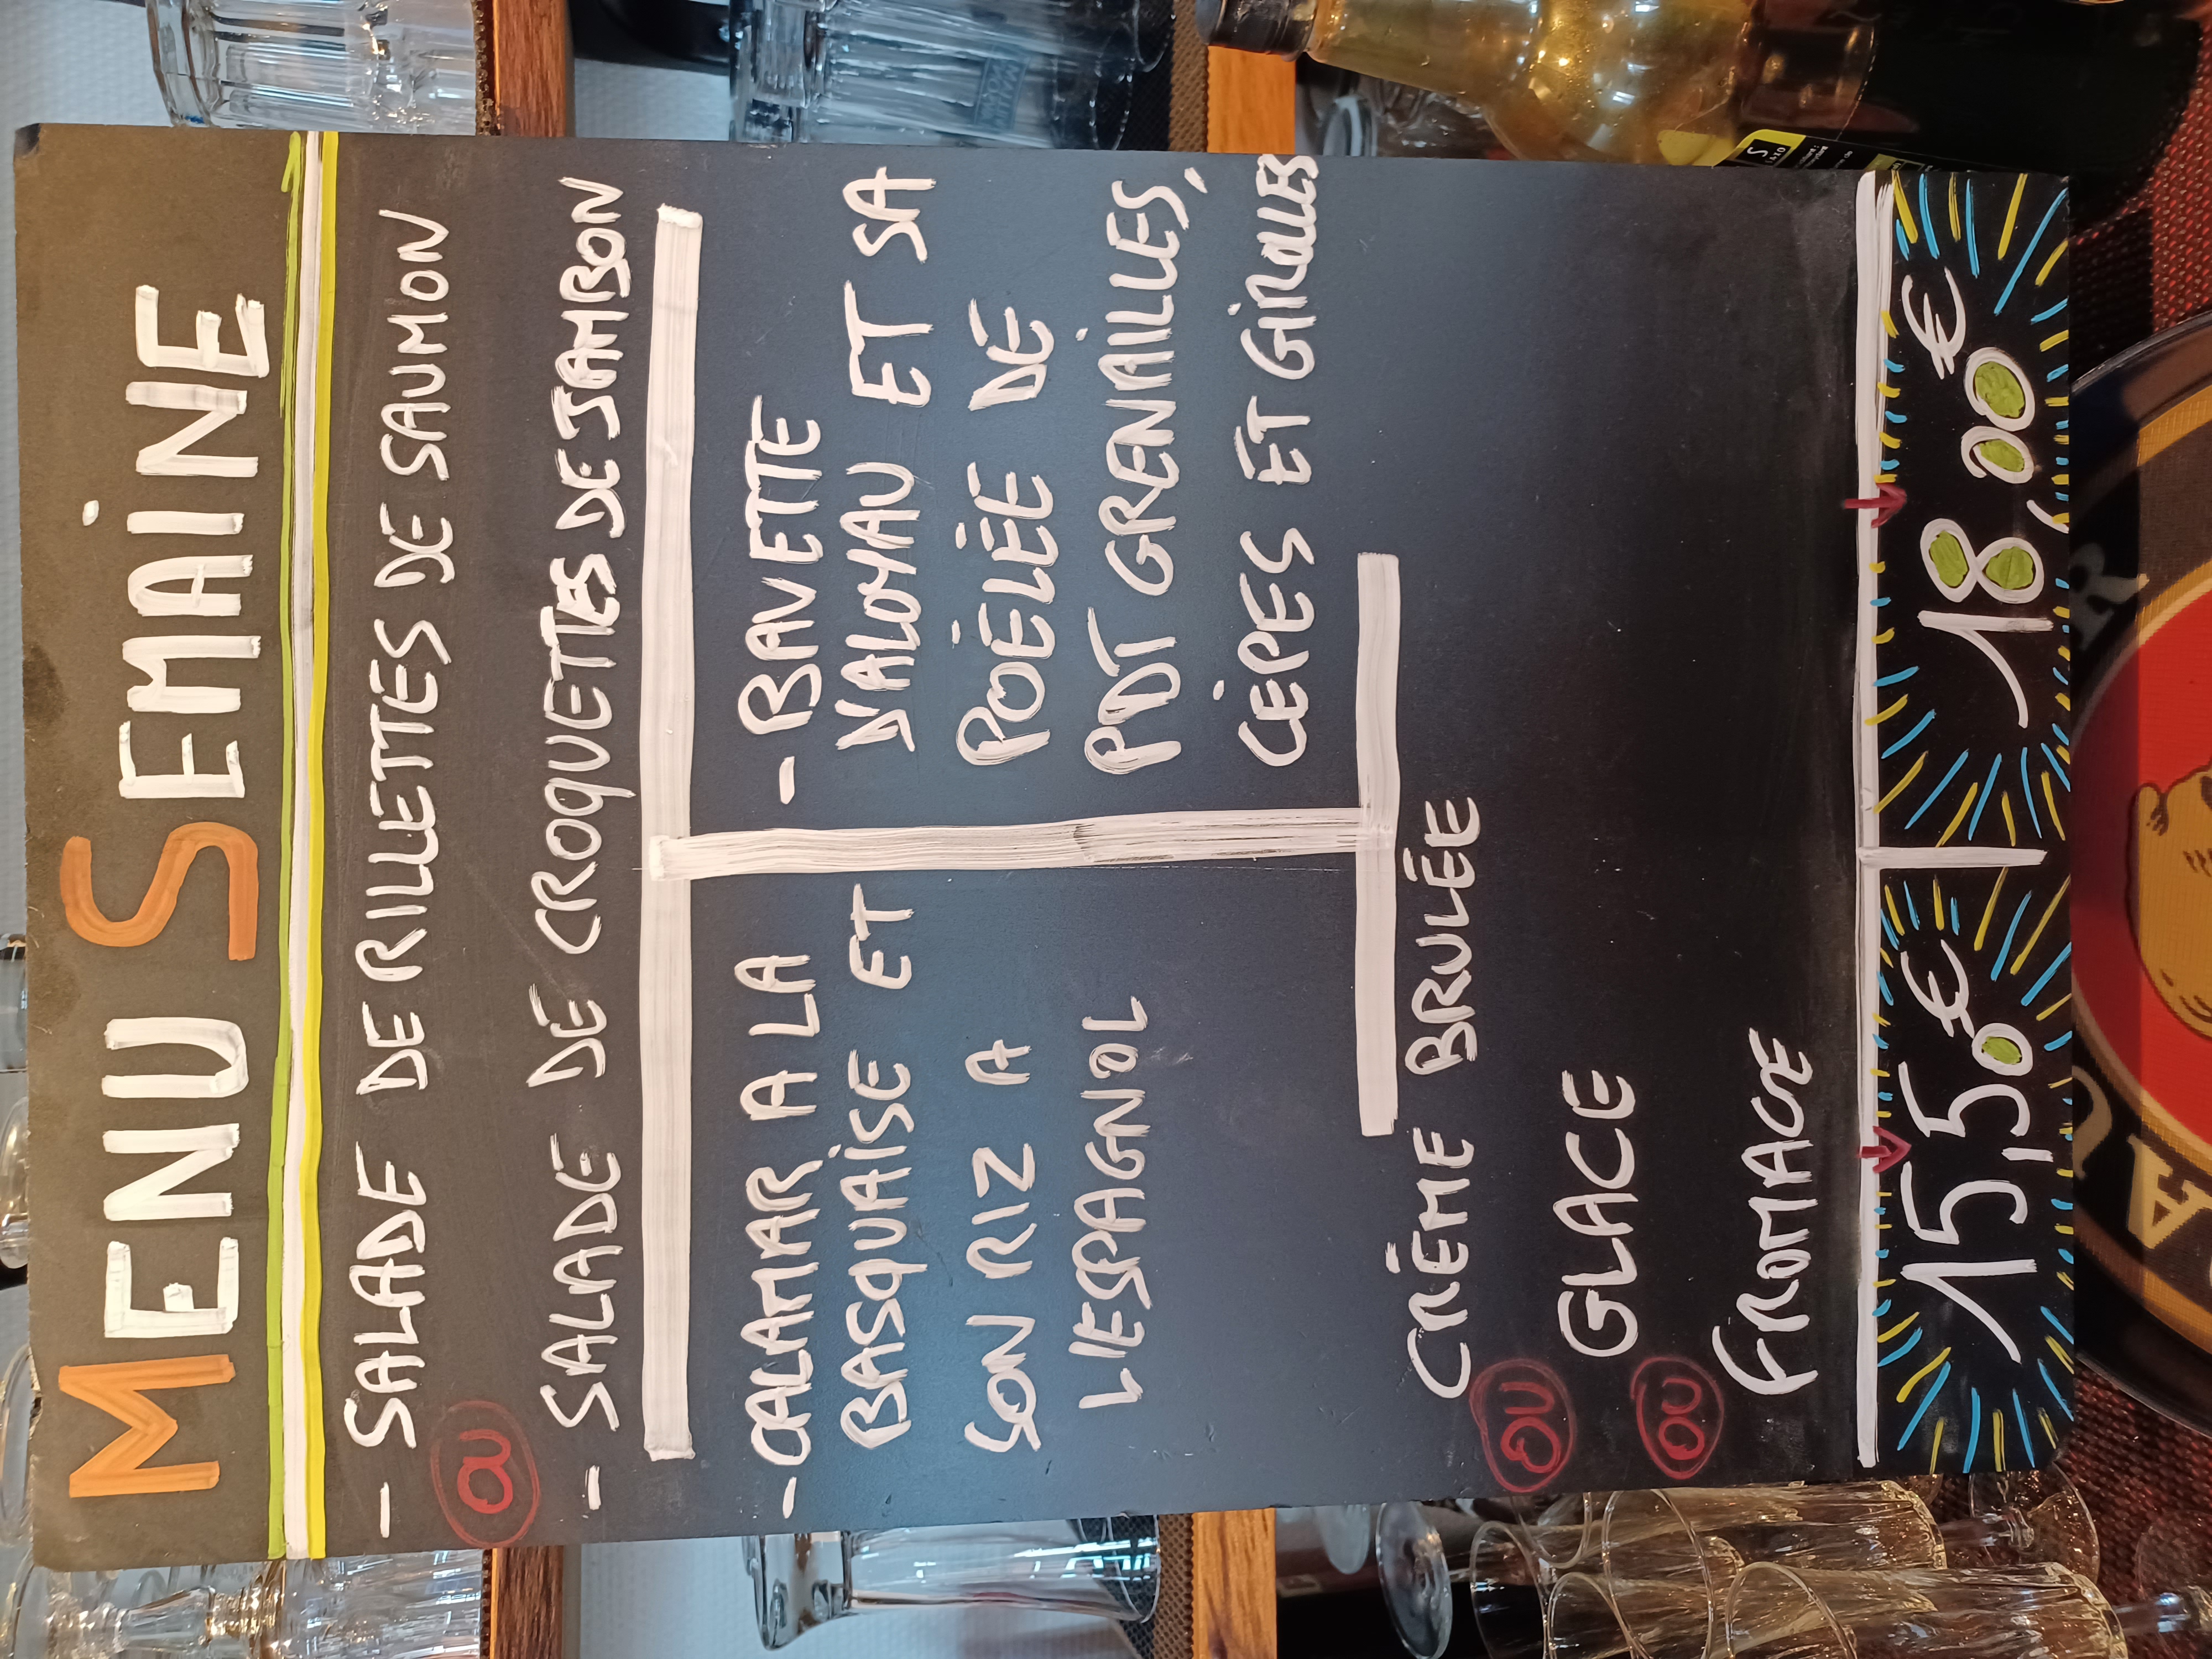 MENU SEMAINE
- SALADE DE RILLETTES DE SAUMON
OU
- SALADE DE CROQUETTES DE JAMBON
- CALAMAR A LA
BASQUAISE ET
SON RIZ A
L'ESPAGNOL
- BAVETTE
D'ALOYAU ET SA
POÊLÉE DE
PDT GRENAILLES,
CÈPES ET GIROLLES
CRÈME BRULÉE
OU
GLACE
OU
FROMAGE
15,50€
18,00€